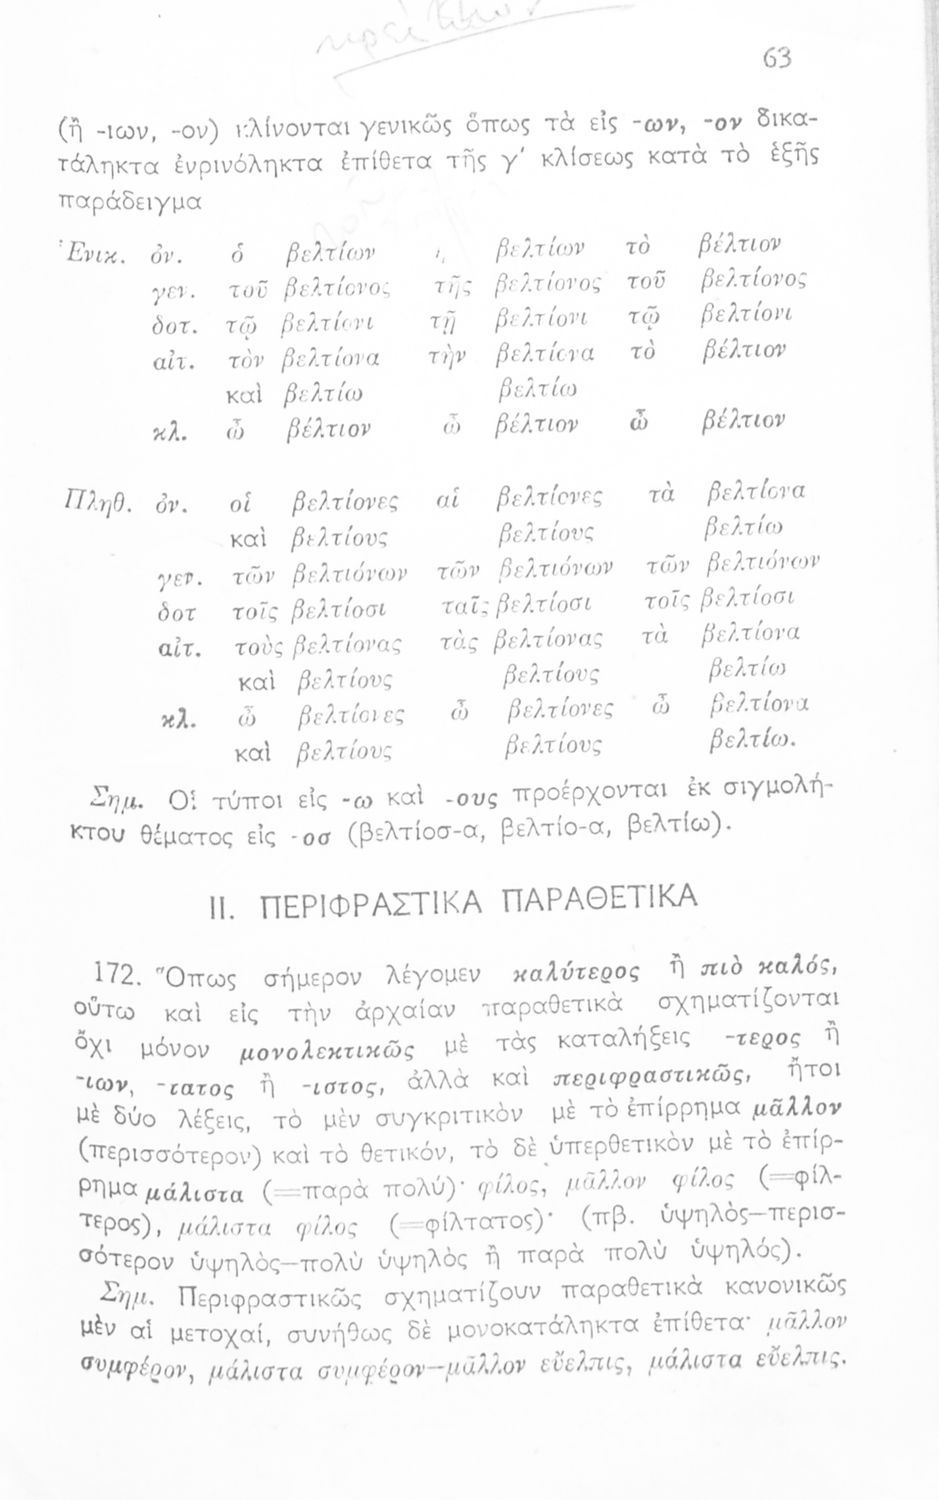 63
(ἢ -ιων, -ον) κλίνονται γενικῶς ὅπως τὰ εἰς -ων, -ον δικα-
τάληκτα ἐνρινόληκτα ἐπίθετα τῆς γ' κλίσεως κατὰ τὸ ἑξῆς
παράδειγμα
Ἑνικ. ὀν. ὁ βελτίων ἡ βελτίων τὸ βέλτιον
γεν. τοῦ βελτίονος τῆς βελτίονος τοῦ βελτίονος
δοτ. τῷ βελτίονι τῇ βελτίονι τῷ βελτίονι
αἰτ. τὸν βελτίονα τὴν βελτίονα τὸ βέλτιον
καὶ βελτίω βελτίω
κλ. ὦ βέλτιον ὦ βέλτιον ὦ βέλτιον
Πληθ. ὀν. οἱ βελτίονες αἱ βελτίονες τὰ βελτίονα
καὶ βελτίους βελτίους βελτίω
γεν. τῶν βελτιόνων τῶν βελτιόνων τῶν βελτιόνων
δοτ τοῖς βελτίοσι ταῖς βελτίοσι τοῖς βελτίοσι
αἰτ. τοὺς βελτίονας τὰς βελτίονας τὰ βελτίονα
καὶ βελτίους βελτίους βελτίω
κλ. ὦ βελτίονες ὦ βελτίονες ὦ βελτίονα
καὶ βελτίους βελτίους βελτίω.
Σημ. Οἱ τύποι εἰς -ω καὶ -ους προέρχονται ἐκ σιγμολή-
κτου θέματος εἰς -οσ (βελτίοσ-α, βελτίο-α, βελτίω).
II. ΠΕΡΙΦΡΑΣΤΙΚΑ ΠΑΡΑΘΕΤΙΚΑ
172. Ὅπως σήμερον λέγομεν καλύτερος ἢ πιὸ καλός,
οὕτω καὶ εἰς τὴν ἀρχαίαν παραθετικὰ σχηματίζονται
ὄχι μόνον μονολεκτικῶς μὲ τὰς καταλήξεις -τερος ἢ
-ιων, -τατος ἢ -ιστος, ἀλλὰ καὶ περιφραστικῶς, ἤτοι
μὲ δύο λέξεις, τὸ μὲν συγκριτικὸν μὲ τὸ ἐπίρρημα μᾶλλον
(περισσότερον) καὶ τὸ θετικόν, τὸ δὲ ὑπερθετικὸν μὲ τὸ ἐπίρ-
ρημα μάλιστα (=παρὰ πολύ)· φίλος, μᾶλλον φίλος (=φίλ-
τερος), μάλιστα φίλος (=φίλτατος)· (πβ. ὑψηλὸς—περισ-
σότερον ὑψηλὸς—πολὺ ὑψηλὸς ἢ παρὰ πολὺ ὑψηλός).
Σημ. Περιφραστικῶς σχηματίζουν παραθετικὰ κανονικῶς
μὲν αἱ μετοχαί, συνήθως δὲ μονοκατάληκτα ἐπίθετα· μᾶλλον
συμφέρον, μάλιστα συμφέρον—μᾶλλον εὔελπις, μάλιστα εὔελπις.